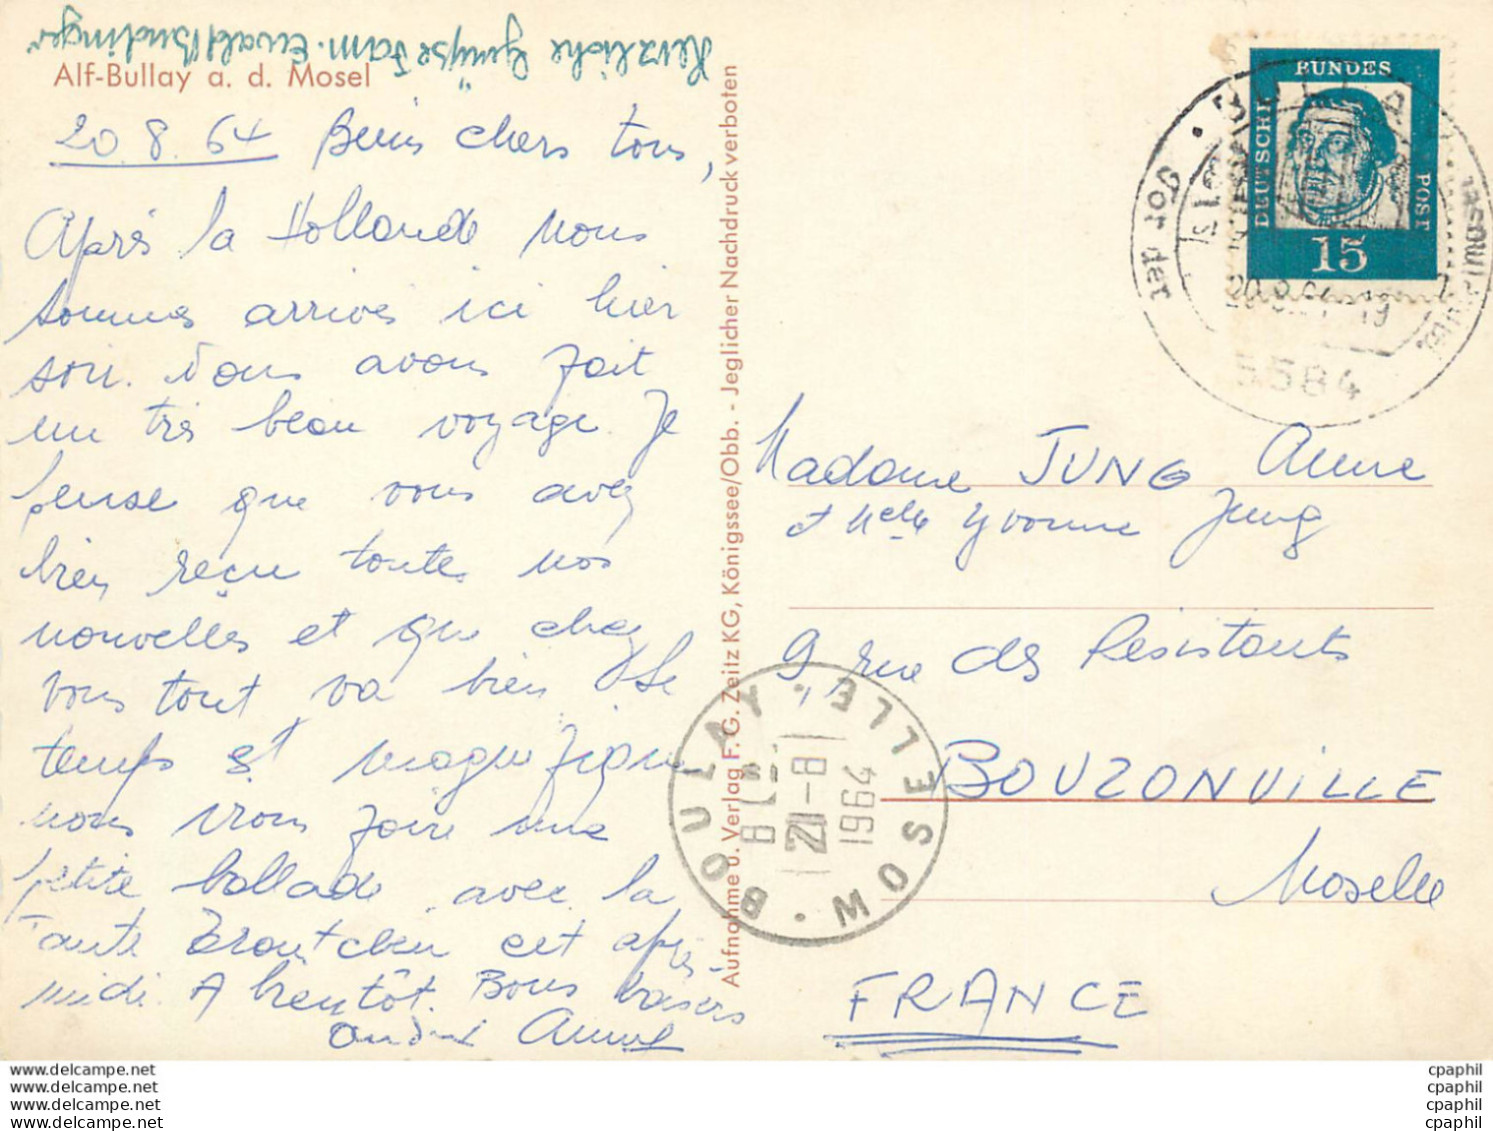 Herzliche Grüsse Fam. Ewald Budinger
Alf-Bullay a. d. Mosel
20.8.64 Biens chers tous,
Après la Hollande nous
sommes arrivés ici hier
soir. Nous avons fait
un très beau voyage. Je
pense que vous avez
bien reçu toutes nos
nouvelles et que chez
vous tout va bien. Le
temps est magnifique
nous irons faire une
petite ballade avec la
Tante cet après-
midi. A bientôt. Bons baisers
André Anne
Aufnahme u. Verlag F. G. Zeitz KG, Königssee/Obb. - Jeglicher Nachdruck verboten
BUNDES
DEUTSCHE
POST
15
20.8.64-19
5584
Madame JUNG Anne
et Melle Yvonne Jung
9, rue des Résistants
BOUZONVILLE
Moselle
FRANCE
BOULAY · MOSELLE ·
21-8
1964
www.delcampe.net
www.delcampe.net
www.delcampe.net
www.delcampe.net
cpaphil
cpaphil
cpaphil
cpaphil